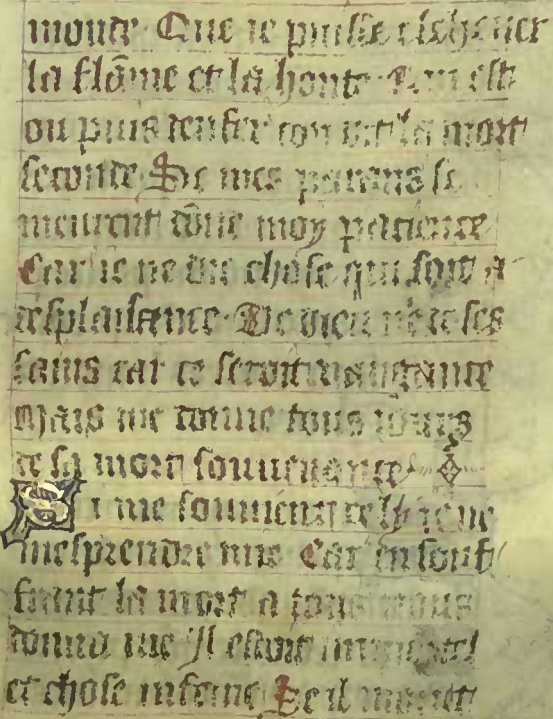 monde Que ie puisse escheuer
la flãme et la honte
ou puis denfer lon dit la mort
seconde Se mes parens se
meurent dõne moy pacience
Car ie ne die chose qui soit a
desplaisance De dieu ne de ses
sains car ce seroit
Mais me donne tous iours
de sa mort souuenance
Si me souuient
mesprendre mie Car en souf
frant la mort a tous nous
donna vie Il estoit
et chose Se il